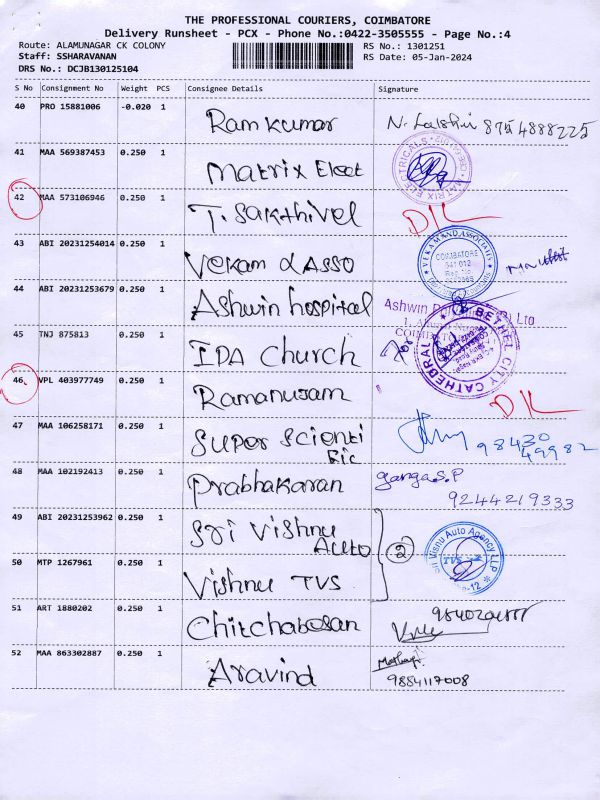 THE PROFESSIONAL COURIERS, COIMBATORE
Delivery Runsheet - PCX - Phone No.:0422-3505555 - Page No.:4
Route: ALAMUNAGAR CK COLONY
RS No.: 1301251
Staff: SSHARAVANAN
RS Date: 05-Jan-2024
DRS No.: DCJB130125104
S No Consignment No Weight PCS Consignee Details Signature
40 PRO 15881006 -0.020 1
Ram kumar
41 MAA 569387453 0.250 1
Matrix Elect
MATRIX ELECTRICALS
42 MAA 573106946 0.250 1
T. Sakthivel D/L
43 ABI 20231254014 0.250 1
Vekam & ASSO
COIMBATORE
641 012
44 ABI 20231253679 0.250 1
Ashwin hospital
Ashwin
45 TNJ 875813 0.250 1
IDA church
BETHEL CITY CATHEDRAL
46 VPL 403977749 0.250 1
Ramanujam D/L
47 MAA 106258171 0.250 1
Super Scienti
fic
98430
49982
48 MAA 102192413 0.250 1
Prabhakaran
ganga.S.P
9244219333
49 ABI 20231253962 0.250 1
Sri Vishnu
Auto
2
Sri Visnu Auto Agency LLP
TVS
50 MTP 1267961 0.250 1
Vishnu TVS
51 ART 1880202 0.250 1
52 MAA 863302887 0.250 1
Aravind
9884117008